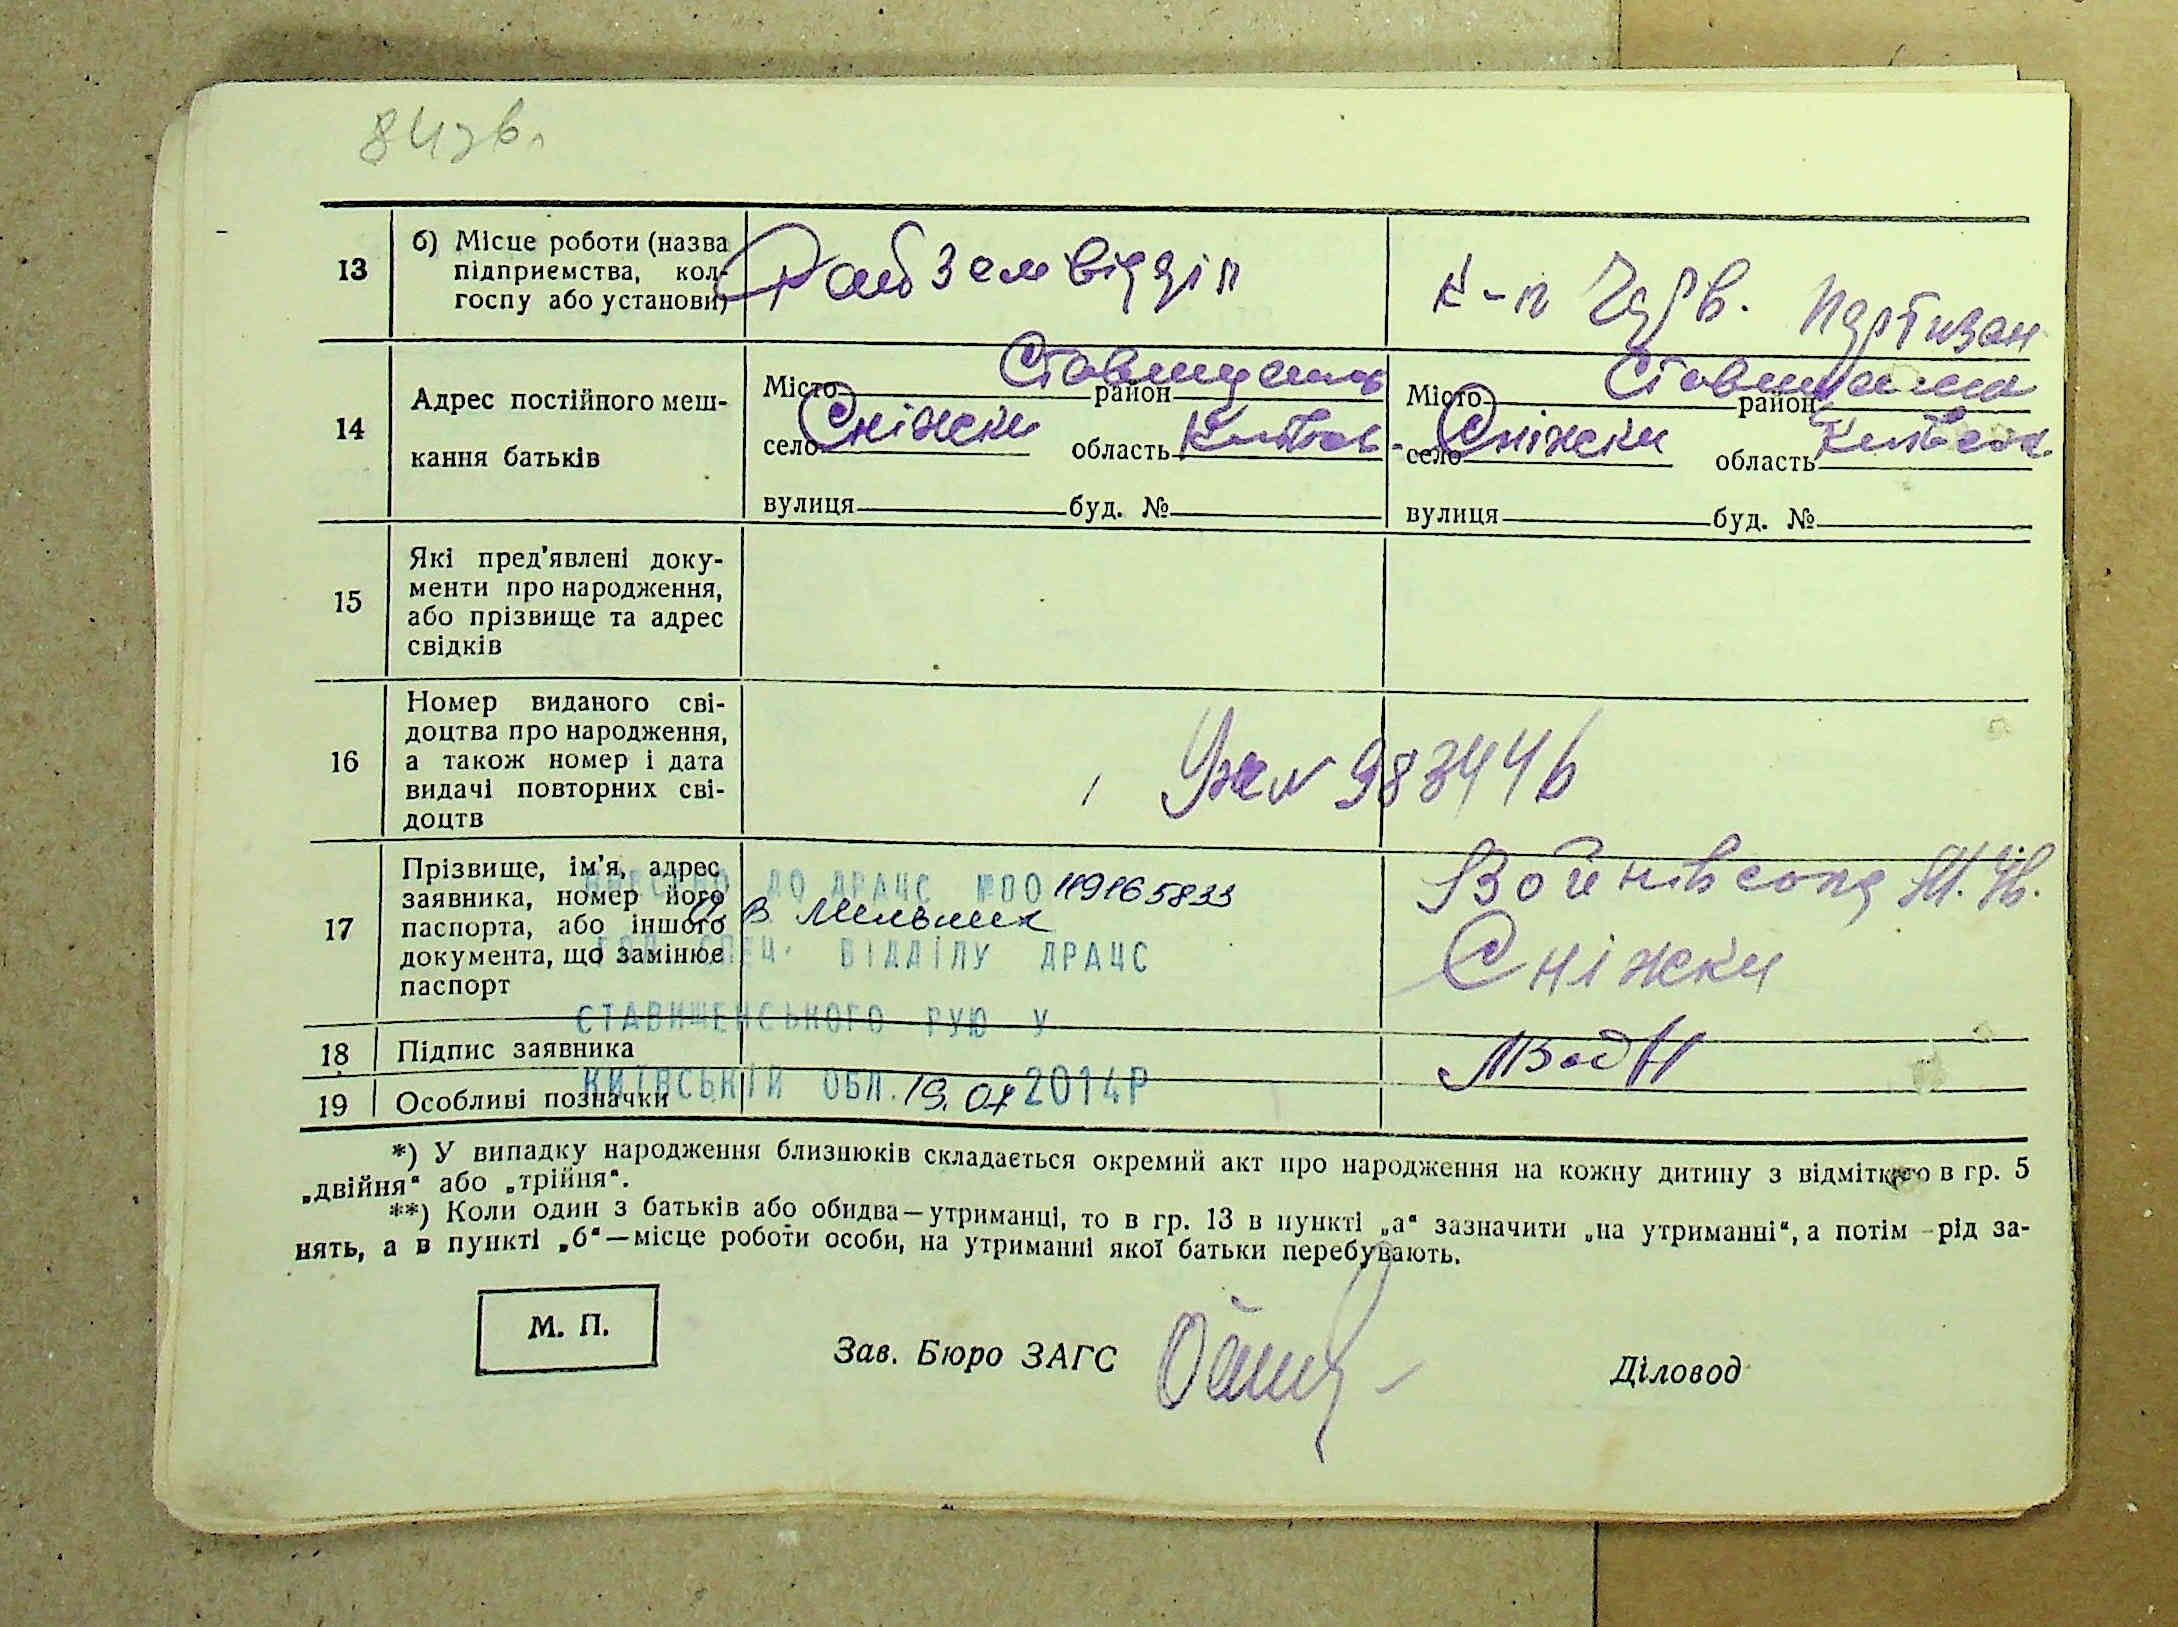 84зв.
13
б) Місце роботи (назва
підприємства, кол-
госпу або установи)
Райземвідділ
к-п Черв. Партизан
14
Адрес постійного меш-
кання батьків
Місто район Ставищанськ
село Сніжки область Київськ
вулиця буд. №
Місто район Ставищанськ
село Сніжки область Київськ
вулиця буд. №
15
Які пред'явлені доку-
менти про народження,
або прізвище та адрес
свідків
16
Номер виданого сві-
доцтва про народження,
а також номер і дата
видачі повторних сві-
доцтв
№ 983446
17
Прізвище, ім'я, адрес
заявника, номер його
паспорта, або іншого
документа, що замінює
паспорт
ВНЕСЕНО ДО ДРАЦС №00119165833
В Мельник
ГОЛ. СПЕЦ. ВІДДІЛУ ДРАЦС
СТАВИЩЕНСЬКОГО РУЮ У
КИЇВСЬКІЙ ОБЛ. 19.07 2014Р
Сніжки
18
Підпис заявника
19
Особливі позначки
*) У випадку народження близнюків складається окремий акт про народження на кожну дитину з відміткою в гр. 5
„двійня“ або „трійня“.
**) Коли один з батьків або обидва—утриманці, то в гр. 13 в пункті „а“ зазначити „на утриманні“, а потім —рід за-
нять, а в пункті „б“—місце роботи особи, на утриманні якої батьки перебувають.
М. П.
Зав. Бюро ЗАГС
Діловод